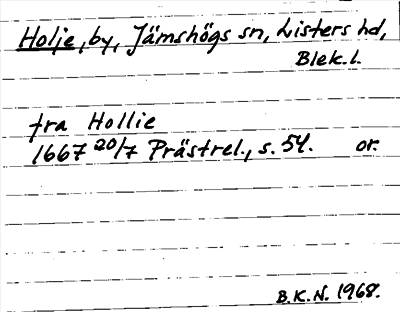 Holje, by, Jämshögs sn, Listers hd,
Blek. l.
fra Hollie
1667 20/7 Prästrel., s. 54. or.
B.K.N. 1968.